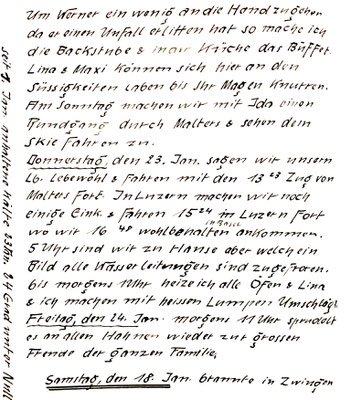 Um Werner ein wenig an die Hand zu gehen
da er einen Unfall erlitten hat so mache ich
die Backstube & in der Küche das Büffet.
Lina & Maxi können sich hier an den
Süssigkeiten laben bis Ihr Magen Knurren.
Am Sonntag machen wir mit Ida einen
Rundgang durch Malters & sehen dem
Skie Fahren zu.
Donnerstag, den 23. Jan. sagen wir unsern
Lb. Lebewohl & Fahren mit den 13 23 Zug von
Malters Fort. In Luzern machen wir noch
einige Eink. & Fahren 15 24 in Luzern Fort
wo wir 16 48 in Basel wohlbehalten ankommen.
5 Uhr sind wir zu Hause aber welch ein
Bild alle Wasserleitungen sind zugefroren.
bis morgens 1 Uhr heize ich alle Öfen & Lina
& ich machen mit heissen Lumpen Umschläge
Freitag, den 24. Jan. morgens 11 Uhr sprudelt
es an allen Hahnen wieder zur grossen
Freude der ganzen Familie,
Samstag, den 18. Jan. brannte in Zwingen
seit 1. Jan. anhaltene Kälte 23 Jan. 24 Grad unter Null